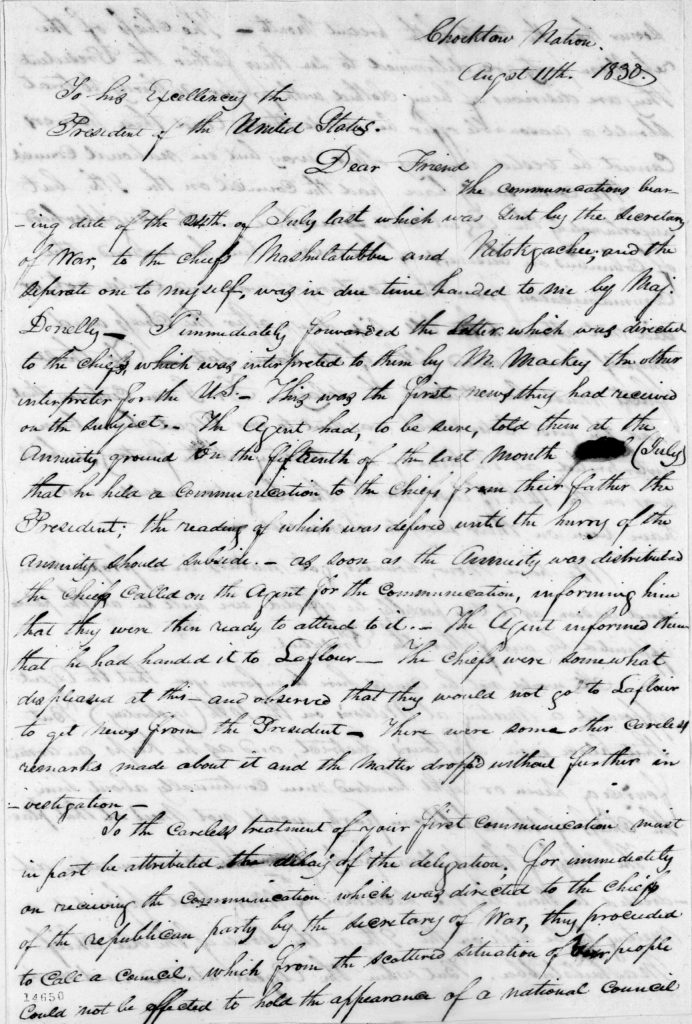 Chocktaw Nation.
Augst 11th. 1830.
To his Excellency the
President of the United States.
Dear Friend
The communications bear-
-ing date of the 24th. of July last which was sent by the secretary
of War, to the chiefs Mashulatubbe and Nitokgachee; and the
seperate one to myself, was in due time handed to me by Maj.
Donelly — I immediately forwarded the latter which was directed
to the chiefs which was interpreted to them by Mr. Mackey the other
interpreter for the U.S. — This was the first news they had received
on the subject. — The Agent had, to be sure, told them at the
Annuity ground on the fifteenth of the last month (July)
that he held a communication to the chiefs from their father the
President; the reading of which was defered until the hurry of the
annuity should subside. — as soon as the Annuity was distributed
the chiefs called on the Agent for the communication, informing him
that they were then ready to attend to it. — The Agent informed them
that he had handed it to Laflour — The chiefs were somewhat
displeased at this — and observed that they would not go to Laflour
to get news from the President — There were some other careless
remarks made about it and the matter dropp'd without further in
-vestigation —
To the careless treatment of your first communication must
in part be attributed the delay of the delegation, for immediately
on receiving the communication which was directed to the chiefs
of the republican party by the secretary of War, they proceeded
to call a council, which from the scattered situation of their people
could not be effected to hold the appearance of a national council
14650